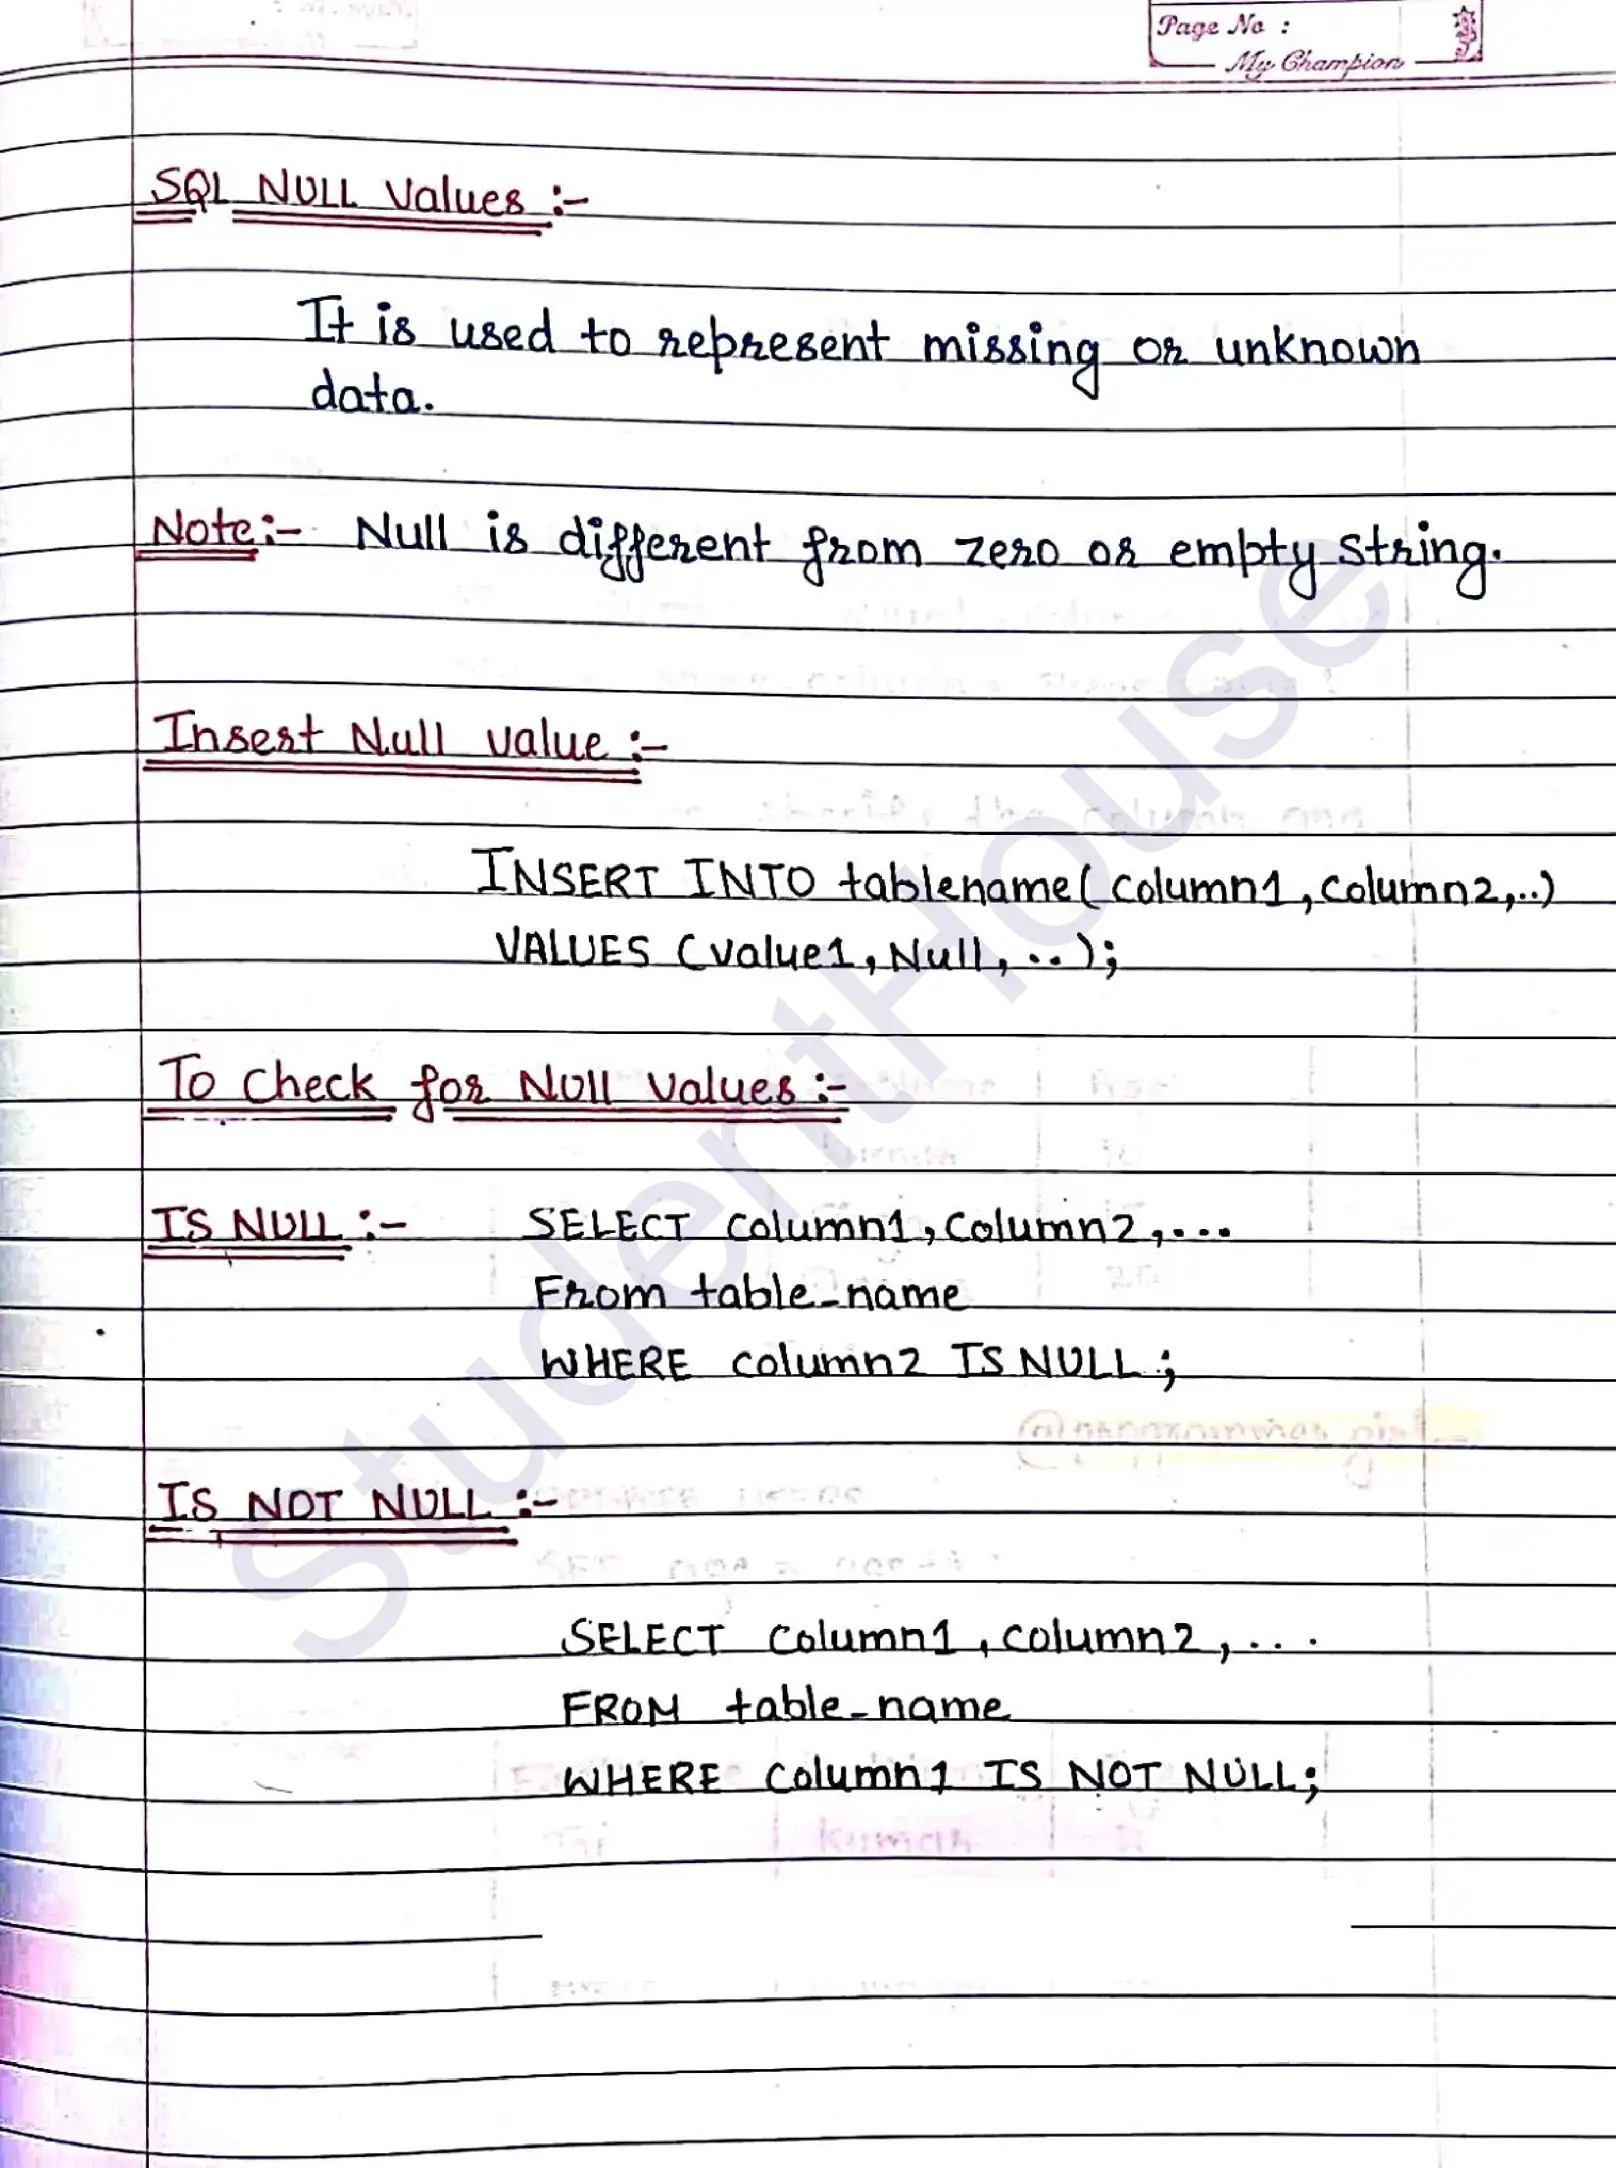 Page No :
My Champion
SQL NULL Values :-
It is used to represent missing or unknown
data.
Note:- Null is different from zero or empty string.
Insert Null value :-
INSERT INTO tablename( column1, column2,..)
VALUES (value1, Null, ..);
To Check for Null values :-
IS NULL :- SELECT column1, column2,...
From table_name
WHERE column2 IS NULL ;
IS NOT NULL :-
SELECT column1, column2, ...
FROM table_name
WHERE column1 IS NOT NULL;
StudentHouse